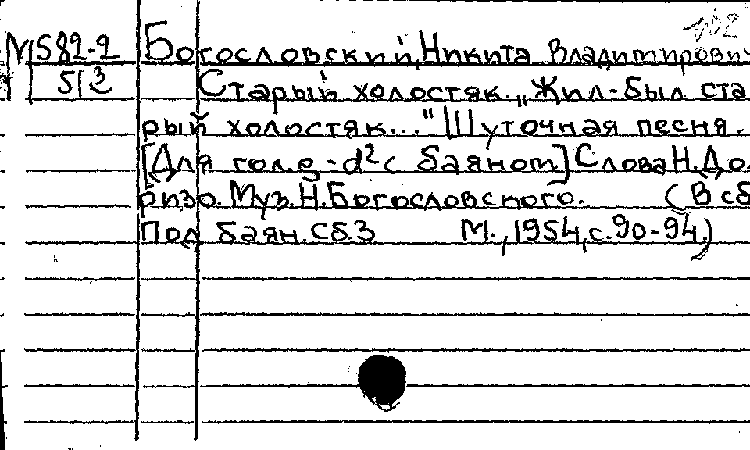 М582-2 Богословский, Никита Владимирови-
513 Старый холостяк. „Жил-был ста-
рый холостяк..." Шуточная песня.
[Для гол. e-d² с баяном.] Слова Н. До-
ризо. Муз. Н. Богословского. (В сб.
Под баян. Сб. 3 М., 1954, с. 90-94.)